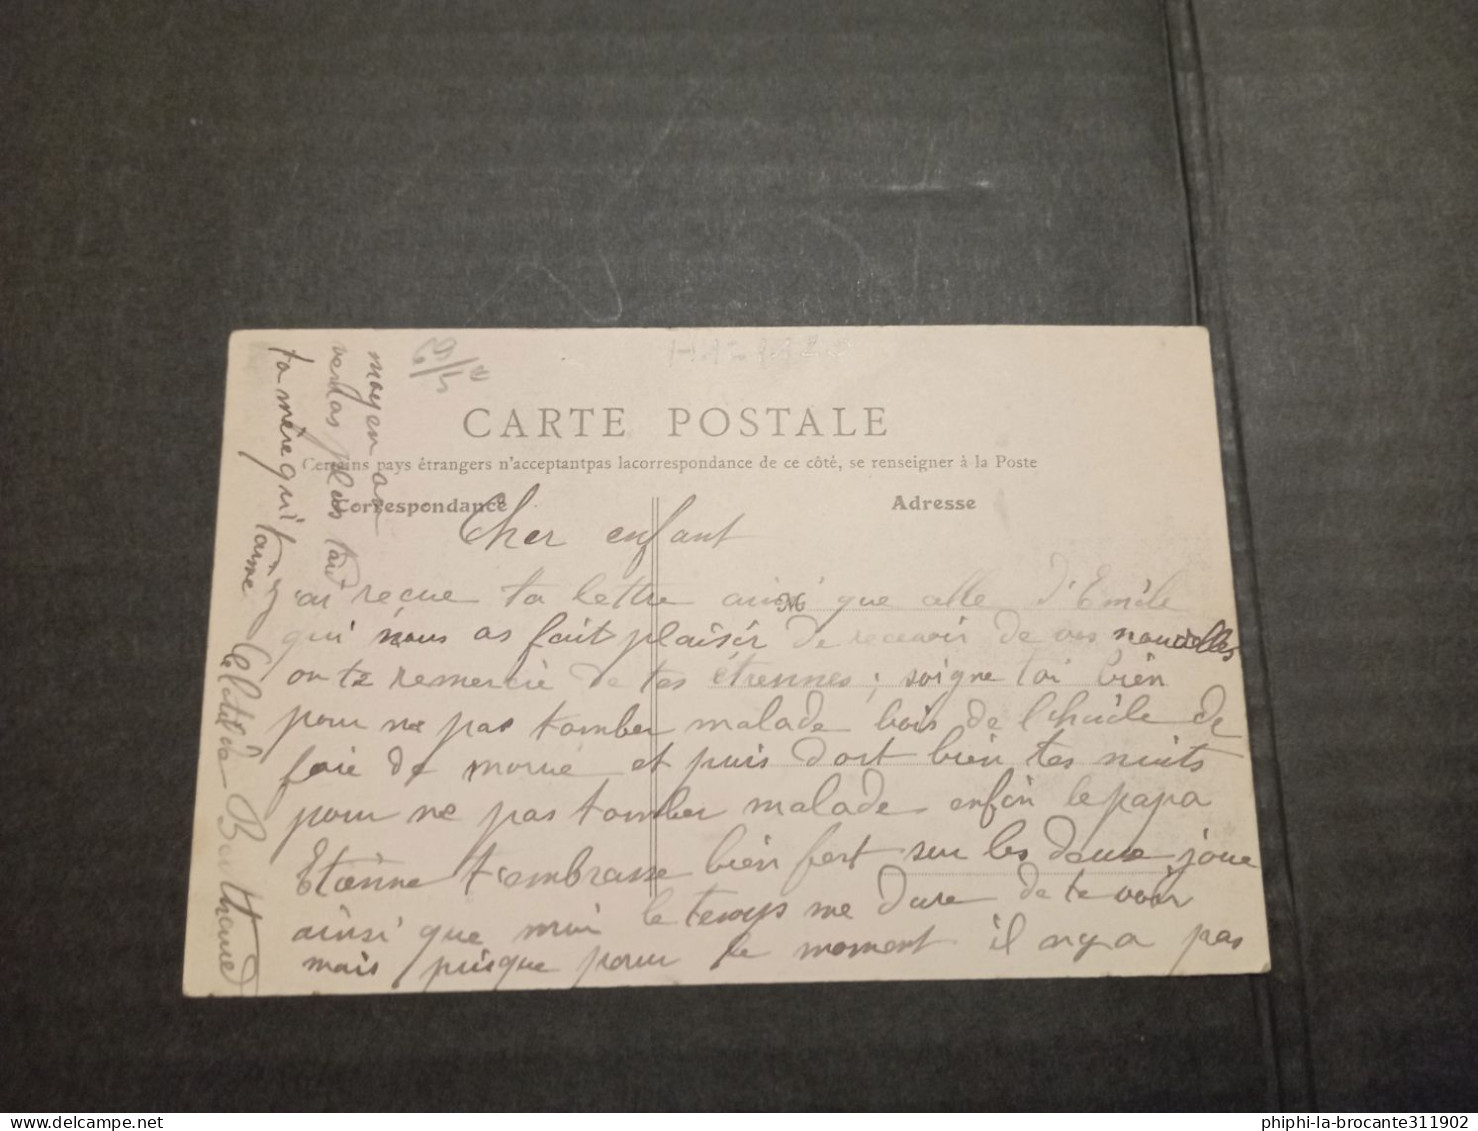 CARTE POSTALE
Certains pays étrangers n'acceptent pas lacorrespondance de ce côté, se renseigner à la Poste
Correspondance
Adresse
Cher enfant
'ai reçue ta lettre ainsi que celle d'Emile
qui nous as fait plaisir de recevoir de vos nouvelles
on te remercie de tes étrennes ; soigne toi bien
pour ne pas tomber malade bois de l'huile de
foie de morue et puis dort bien tes nuits
pour ne pas tomber malade enfin le papa
Etienne t'embrasse bien fort sur les deux joue
ainsi que moi le temps me dure de te voir
mais puisque pour le moment il n'y a pas
moyen on
verras plus tard
ta mère qui t'aime
phiphi-la-brocante311902